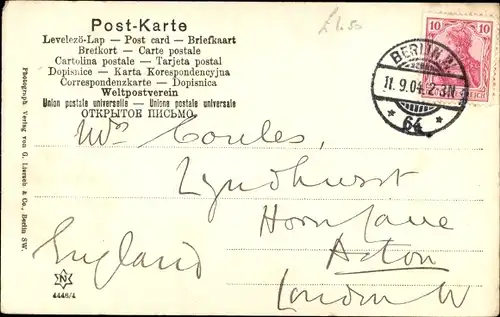 Post-Karte
£1.50
Levelező-Lap — Post card — Briefkaart
Brefkort — Carte postale
Cartolina postale — Tarjeta postal
Dopisnice — Karta Korespondencyjna
Correspondenzkarte — Dopisnica
Weltpostverein
Union postale universelle — Unione postale universale
ОТКРЫТОЕ ПИСЬМО.
10 10
REICH
BERLIN
11.9.04. 2-3N
* 64 *
Mrs Coules,
Lyndhurst
Horn Lane
Acton
London W
England
Photograph Verlag von G. Liersch & Co., Berlin SW.
N
4446/4